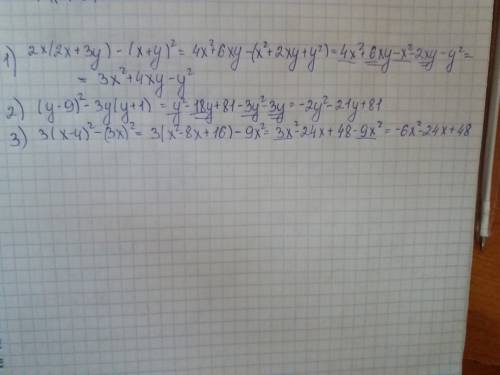 1) 2x(2x+3y)-(x+y)²=4x²+6xy-(x²+2xy+y²)=4x²+6xy-x²-2xy-y²=
= 3x²+4xy-y²
2) (y-9)²-3y(y+1)=y²-18y+81-3y²-3y=-2y²-21y+81
3) 3(x-4)²-(3x)²=3(x²-8x+16)-9x²=3x²-24x+48-9x²=-6x²-24x+48